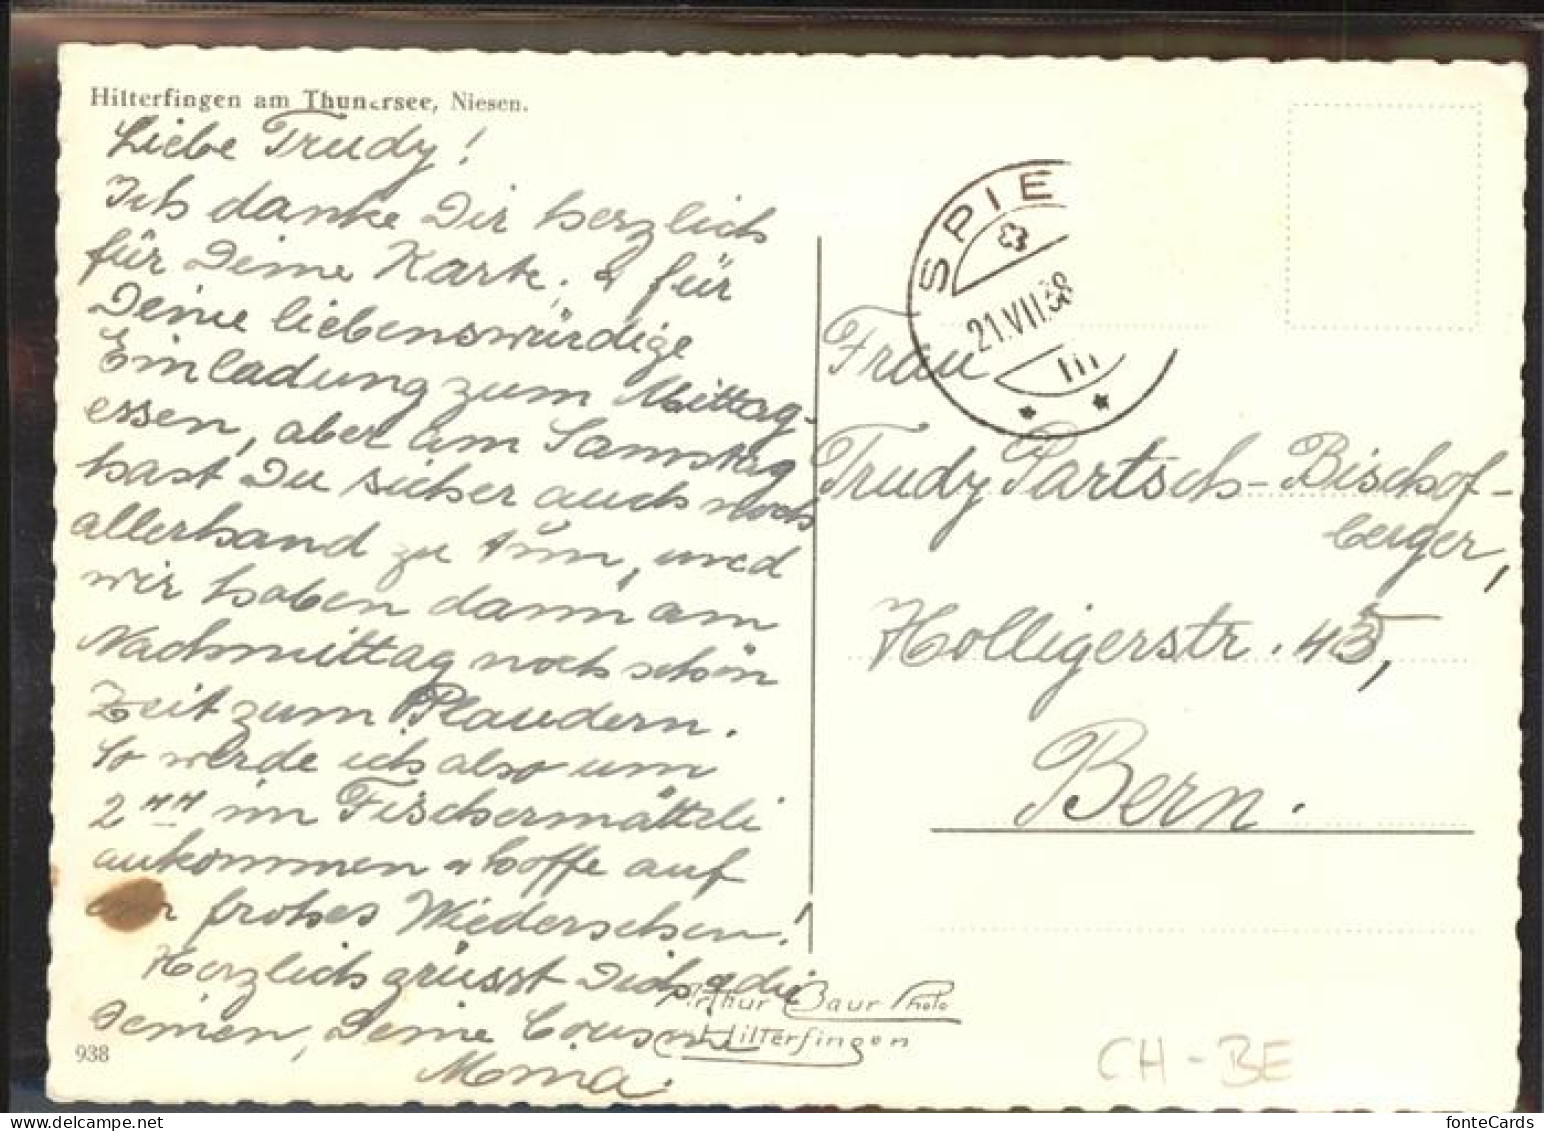 Hilterfingen am Thunersee, Niesen.
Liebe Trudy!
Ich danke Dir herzlich
für Deine Karte, & für
Deine liebenswürdige
Einladung zum Mittag-
essen, aber am Samstag
hast Du sicher auch noch
allerhand zu tun, und
wir haben dann am
Nachmittag noch schön
Zeit zum Plaudern.
So werde ich also um
2 im Fischermätteli
ankommen & hoffe auf
ein frohes Wiedersehen!
Herzlich grüsst Dich & die
Deinen, Deine Cousine
938
SPIE
21.VII.38
III
Frau
Trudy Partsch-Bischof-
berger,
Holligerstr. 43,
Bern.
Arthur Baur Photo
Hilterfingen
CH-BE
fonteCards